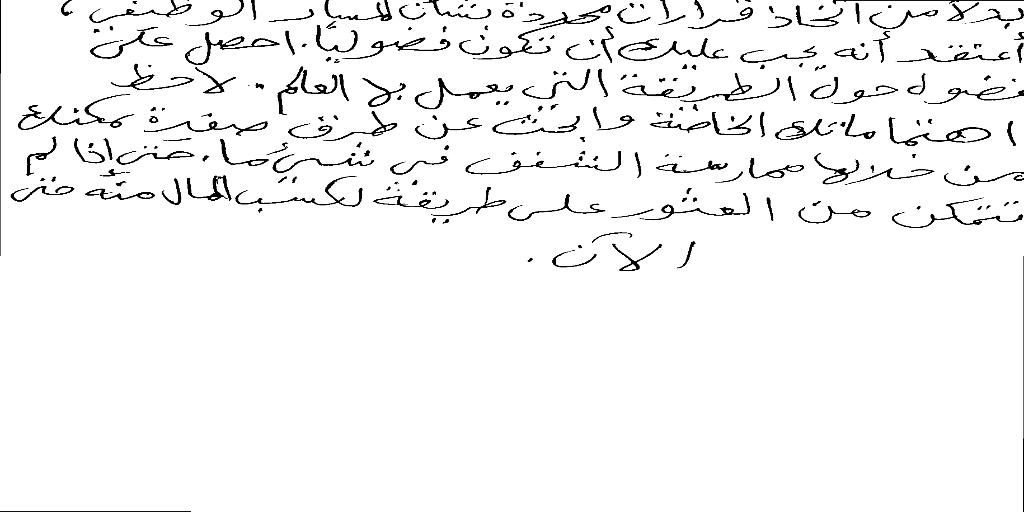 بدلا من اتخاذ قرارات محددة بشأن المسار الوظيفي،
أعتقد أنه يجب عليك أن تكون فضوليًا. احصل على
فضول حول الطريقة التي يعمل بها العالم. لاحظ
اهتماماتك الخاصة وابحث عن طرق صغيرة يمكنك
من خلالها ممارسة الشغف في شيء ما. حتى إذا لم
تتمكن من العثور على طريقة لكسب المال منه حتى
الآن.